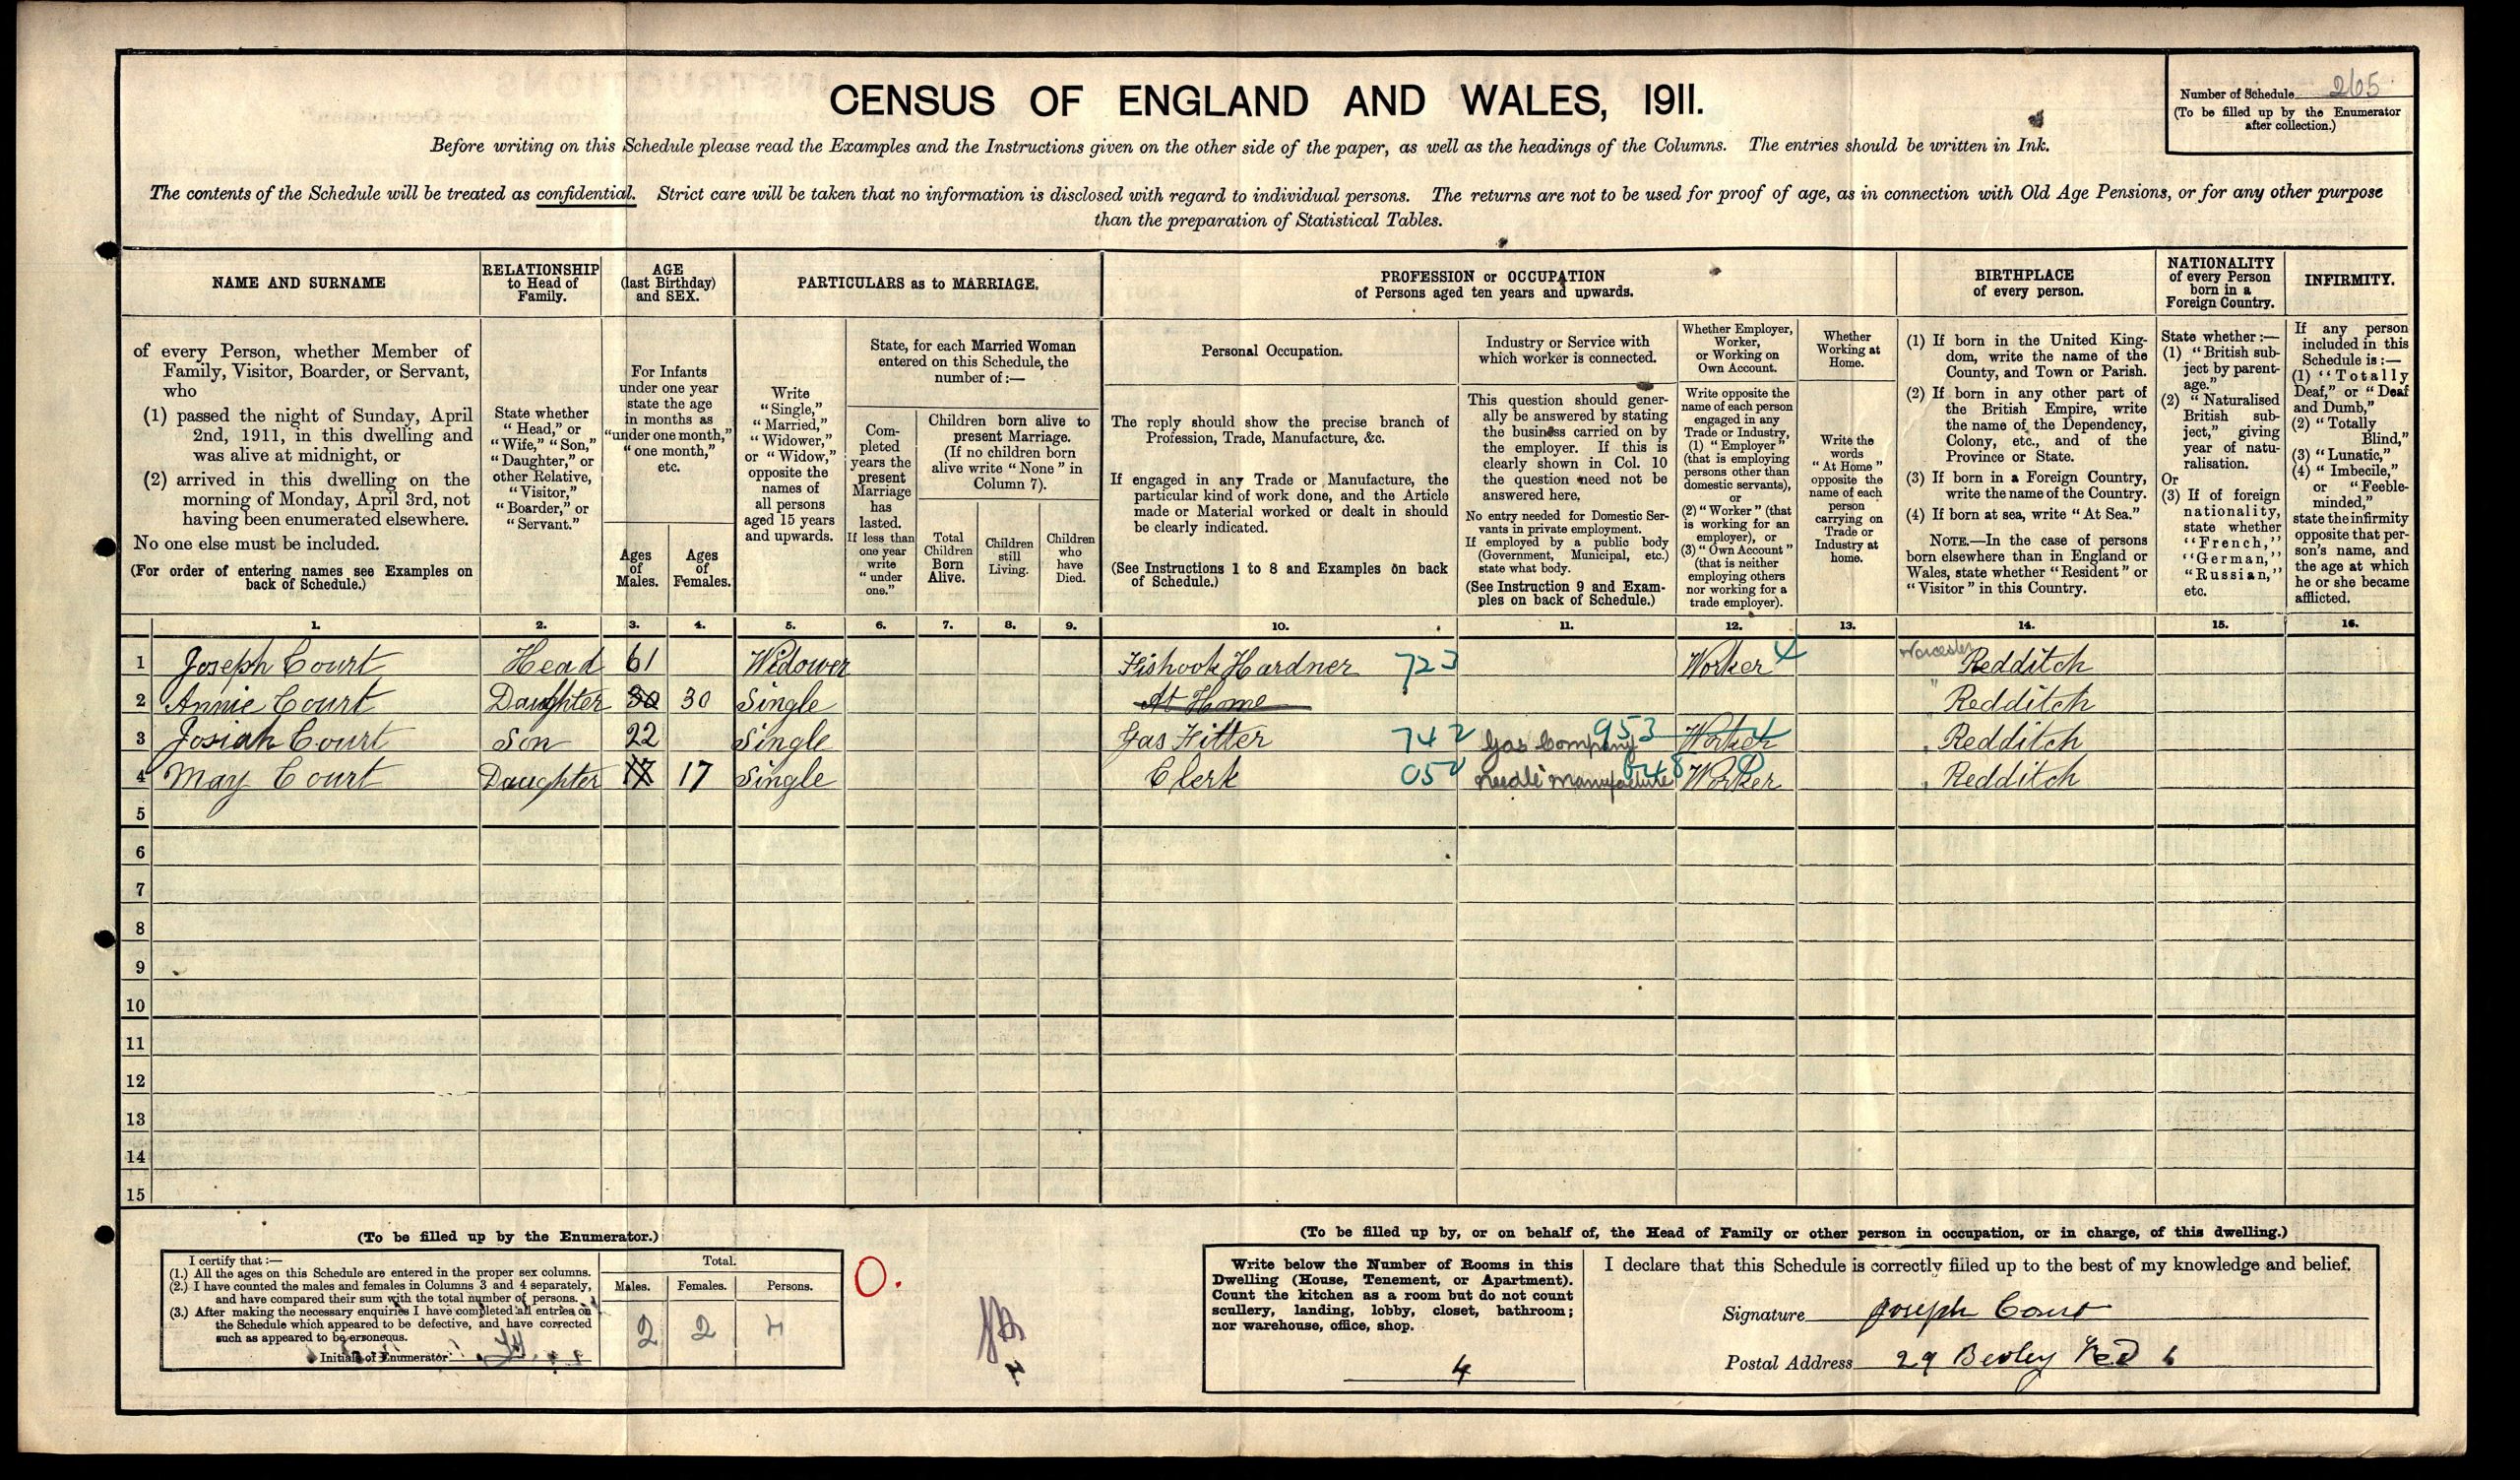 CENSUS OF ENGLAND AND WALES, 1911.
Number of Schedule 265
(To be filled up by the Enumerator
after collection.)
Before writing on this Schedule please read the Examples and the Instructions given on the other side of the paper, as well as the headings of the Columns. The entries should be written in Ink.
The contents of the Schedule will be treated as confidential. Strict care will be taken that no information is disclosed with regard to individual persons. The returns are not to be used for proof of age, as in connection with Old Age Pensions, or for any other purpose
than the preparation of Statistical Tables.
NAME AND SURNAME
of every Person, whether Member of
Family, Visitor, Boarder, or Servant,
who
(1) passed the night of Sunday, April
2nd, 1911, in this dwelling and
was alive at midnight, or
(2) arrived in this dwelling on the
morning of Monday, April 3rd, not
having been enumerated elsewhere.
No one else must be included.
(For order of entering names see Examples on
back of Schedule.)
RELATIONSHIP
to Head of
Family.
State whether
"Head," or
"Wife," "Son,"
"Daughter," or
other Relative,
"Visitor,"
"Boarder," or
"Servant."
AGE
(last Birthday)
and SEX.
For Infants
under one year
state the age
in months as
"under one month,"
"one month,"
etc.
Ages
of
Males.
Ages
of
Females.
PARTICULARS as to MARRIAGE.
Write
"Single,"
"Married,"
"Widower,"
or "Widow,"
opposite the
names of
all persons
aged 15 years
and upwards.
State, for each Married Woman
entered on this Schedule, the
number of:—
Com-
pleted
years the
present
Marriage
has
lasted.
If less than
one year
write
"under
one."
Children born alive to
present Marriage.
(If no children born
alive write "None" in
Column 7).
Total
Children
Born
Alive.
Children
still
Living.
Children
who
have
Died.
PROFESSION or OCCUPATION
of Persons aged ten years and upwards.
Personal Occupation.
The reply should show the precise branch of
Profession, Trade, Manufacture, &c.
If engaged in any Trade or Manufacture, the
particular kind of work done, and the Article
made or Material worked or dealt in should
be clearly indicated.
(See Instructions 1 to 8 and Examples on back
of Schedule.)
Industry or Service with
which worker is connected.
This question should gener-
ally be answered by stating
the business carried on by
the employer. If this is
clearly shown in Col. 10
the question need not be
answered here.
No entry needed for Domestic Ser-
vants in private employment.
If employed by a public body
(Government, Municipal, etc.)
state what body.
(See Instruction 9 and Exam-
ples on back of Schedule.)
Whether Employer,
Worker,
or Working on
Own Account.
Write opposite the
name of each person
engaged in any
Trade or Industry,
(1) "Employer"
(that is employing
persons other than
domestic servants),
or
(2) "Worker" (that
is working for an
employer), or
(3) "Own Account"
(that is neither
employing others
nor working for a
trade employer).
Whether
Working at
Home.
Write the
words
"At Home"
opposite the
name of each
person
carrying on
Trade or
Industry at
home.
BIRTHPLACE
of every person.
(1) If born in the United King-
dom, write the name of the
County, and Town or Parish.
(2) If born in any other part of
the British Empire, write
the name of the Dependency,
Colony, etc., and of the
Province or State.
(3) If born in a Foreign Country,
write the name of the Country.
(4) If born at sea, write "At Sea."
NOTE.—In the case of persons
born elsewhere than in England or
Wales, state whether "Resident" or
"Visitor" in this Country.
NATIONALITY
of every Person
born in a
Foreign Country.
State whether:—
(1) "British sub-
ject by parent-
age."
(2) "Naturalised
British sub-
ject," giving
year of natu-
ralisation.
Or
(3) If of foreign
nationality,
state whether
"French,"
"German,"
"Russian,"
etc.
INFIRMITY.
If any person
included in this
Schedule is:—
(1) "Totally
Deaf," or "Deaf
and Dumb,"
(2) "Totally
Blind,"
(3) "Lunatic,"
(4) "Imbecile,"
or "Feeble-
minded,"
state the infirmity
opposite that per-
son's name, and
the age at which
he or she became
afflicted.
1. 2. 3. 4. 5. 6. 7. 8. 9. 10. 11. 12. 13. 14. 15. 16.
1 Joseph Court Head 61 Widower Fishook Hardner 723 Worker 4 Worcester Redditch
2 Annie Court Daughter 30 30 Single At Home " Redditch
3 Josiah Court Son 22 Single Gas Fitter 742 Gas Company 953 Worker " Redditch
4 May Court Daughter 17 17 Single Clerk 05 Needle Manufacture 648 Worker 0 " Redditch
5
6
7
8
9
10
11
12
13
14
15
(To be filled up by the Enumerator.)
I certify that:—
(1.) All the ages on this Schedule are entered in the proper sex columns.
(2.) I have counted the males and females in Columns 3 and 4 separately,
and have compared their sum with the total number of persons.
(3.) After making the necessary enquiries I have completed all entries on
the Schedule which appeared to be defective, and have corrected
such as appeared to be erroneous.
Initials of Enumerator
Total.
Males. Females. Persons.
2 2 4
0.
(To be filled up by, or on behalf of, the Head of Family or other person in occupation, or in charge, of this dwelling.)
Write below the Number of Rooms in this
Dwelling (House, Tenement, or Apartment).
Count the kitchen as a room but do not count
scullery, landing, lobby, closet, bathroom;
nor warehouse, office, shop.
4
I declare that this Schedule is correctly filled up to the best of my knowledge and belief.
Signature Joseph Court
Postal Address 29 Beoley